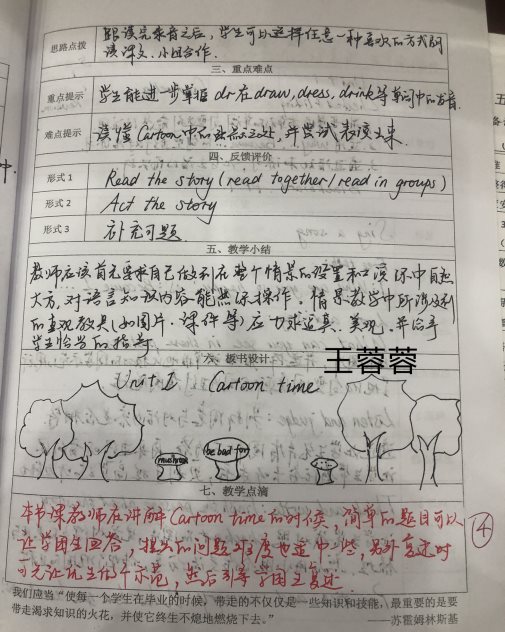 思路点拨
跟读完录音之后,学生可以选择任意一种喜欢的方式朗
读课文.小组合作.
三、重点难点
重点提示
学生能进一步掌握 dr 在 draw, dress, drink 等单词中的发音.
难点提示
读懂 Cartoon 中的 ,并尝试表演出来.
四、反馈评价
形式 1
Read the story (read together/read in groups)
形式 2
Act the story
形式 3
补充习题.
五、教学小结
教师应该首先要求自己做到在整个情景的设置和演译中自然
大方,对语言知识内容能熟练操作。情景教学中所涉及到
的直观教具(如图片.课件等)应力求逼真、美观,并给予
学生恰当的指导
六、板书设计
王蓉蓉
Unit 1 Cartoon time
mushroom
be bad for
七、教学点滴
本节课教师在讲解 Cartoon time 的时候,简单的题目可以
让学困生回答,提出的问题难度也适中一些,另外复述时
可先让优生做个示范,然后引导学困生复述.
④
我们应当“使每一个学生在毕业的时候,带走的不仅仅是一些知识和技能,最重要的是要
带走渴求知识的火花,并使它终生不熄地燃烧下去。”
——苏霍姆林斯基